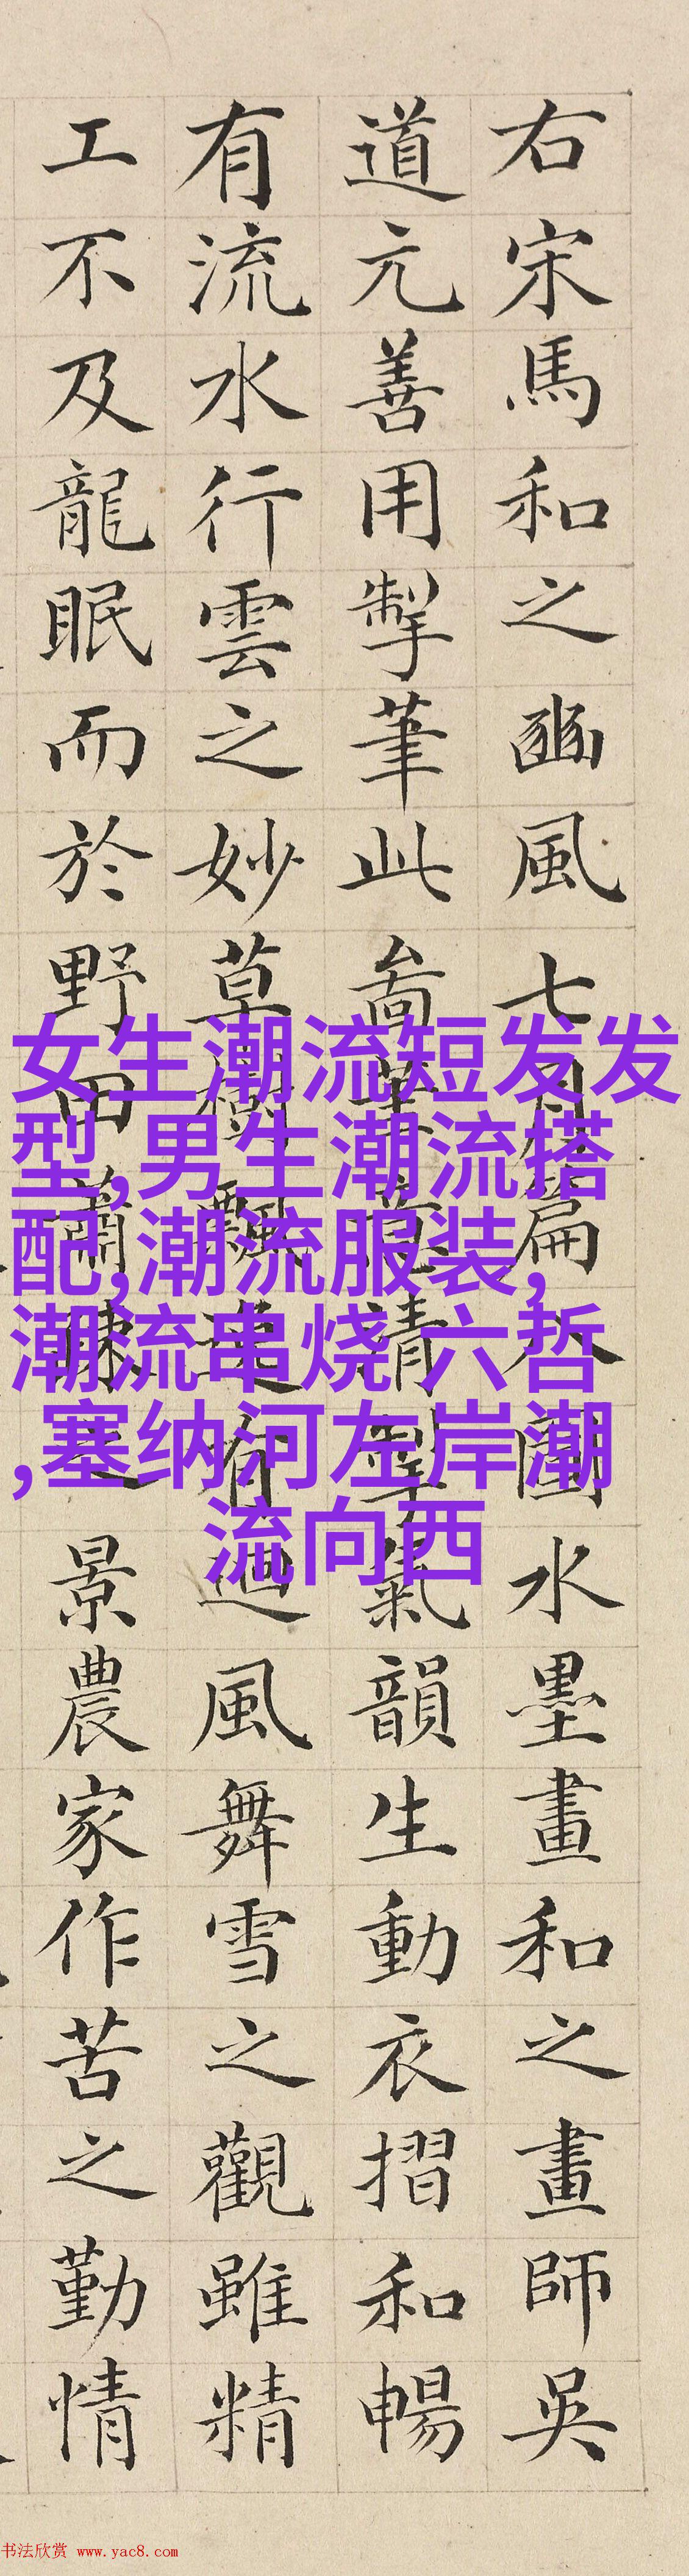 右宋馬和之豳風七月篇八圖水墨畫和之畫師吳
道元善用掣筆此啚清氣韻生動衣摺和暢
有流水行雲之妙草樹飄有迴風舞雪之觀雖精
工不及龍眠而於野田蕭疎之景農家作苦之勤情
女生潮流短发发
型,男生潮流搭
配,潮流服装,
潮流串烧 六哲
,塞纳河左岸潮
流向西
书法欣赏 www.yac8.com